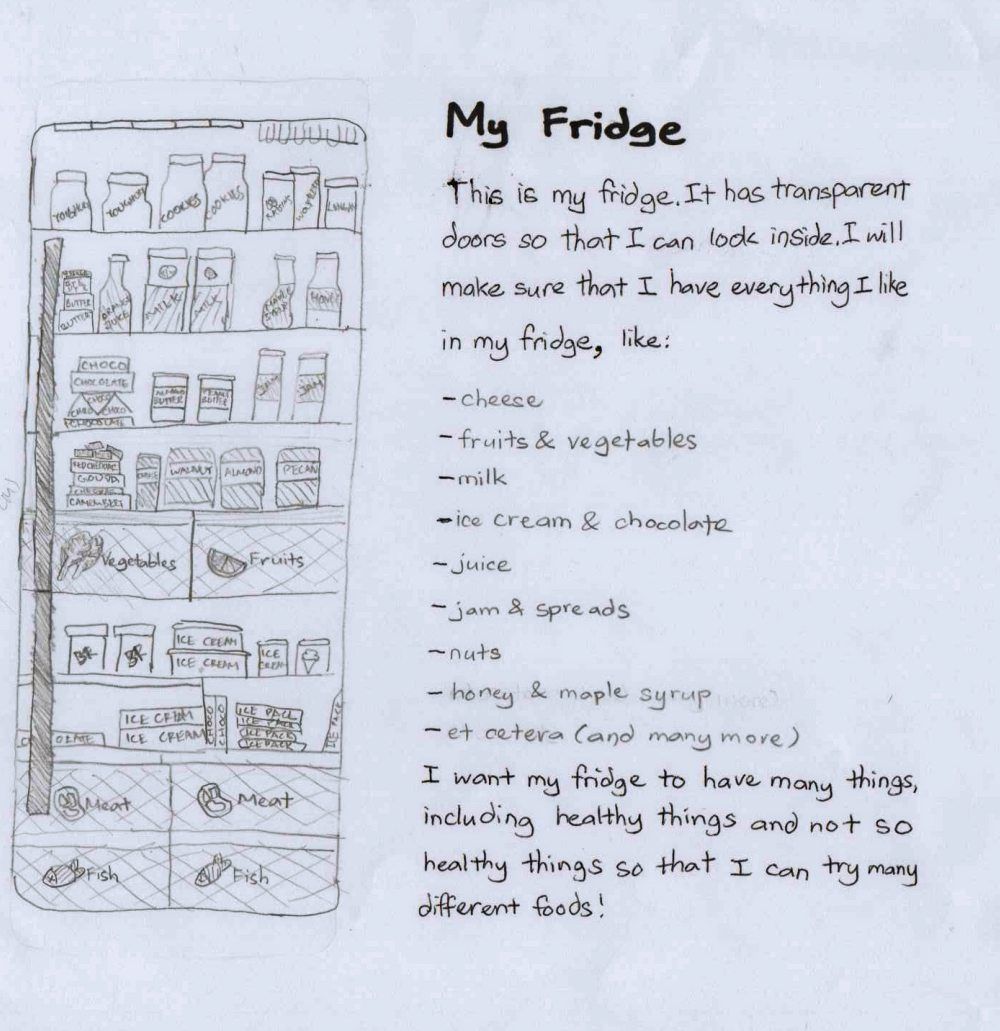 My Fridge
This is my fridge. It has transparent
doors so that I can look inside. I will
make sure that I have everything I like
in my fridge, like:
- cheese
- fruits & vegetables
- milk
- ice cream & chocolate
- juice
- jam & spreads
- nuts
- honey & maple syrup
- et cetera (and many more)
I want my fridge to have many things,
including healthy things and not so
healthy things so that I can try many
different foods!
COOKIES
COOKIES
BUTTER
BUTTER
ORANGE JUICE
MILK
MILK
MAPLE SYRUP
HONEY
CHOCO
CHOCOLATE
CHOCO
CHOCO
CHOCO
CHOCOLATE
ALMOND BUTTER
PEANUT BUTTER
JAM
JAM
RED CHEDDAR
GOUDA
CHEDDAR
CAMEMBERT
WALNUT
ALMOND
PECAN
Vegetables
Fruits
ICE CREAM
ICE CREAM
ICE CREAM
OLATE
ICE CREAM
ICE CREAM
CHOCO
CHOCO
ICE PACK
ICE PACK
ICE PACK
ICE PACK
ICE PACK
Meat
Meat
Fish
Fish